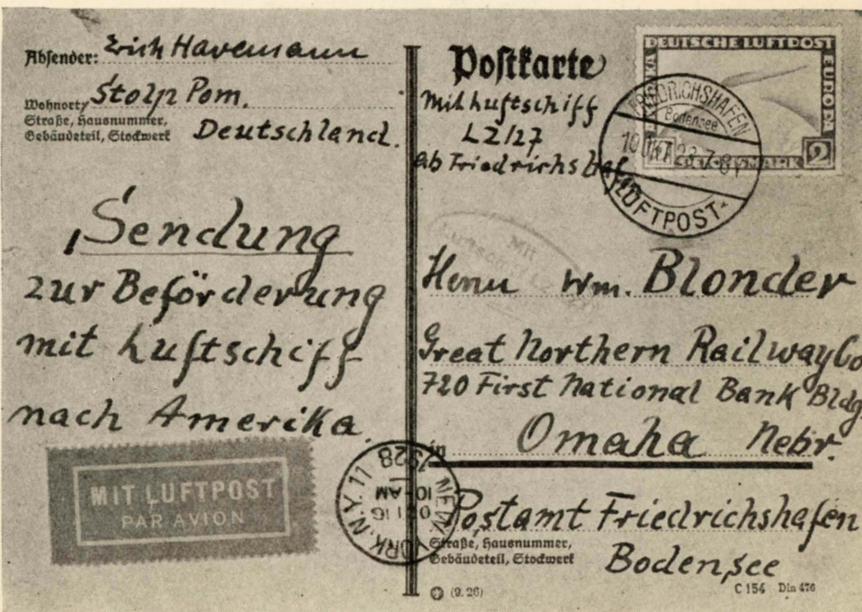 Absender: Erich Havemann
Wohnort, Stolp Pom.
Straße, Hausnummer,
Gebäudeteil, Stockwerk Deutschland.
Sendung
zur Beförderung
mit Luftschiff
nach Amerika.
MIT LUFTPOST
PAR AVION
Postkarte
Mit Luftschiff
LZ127
ab Friedrichshafen
DEUTSCHE LUFTPOST
EUROPA
2
FRIEDRICHSHAFEN
Bodensee
LUFTPOST
Mit
Luftschiff
Herrn Wm. Blonder
Great Northern Railway Co
720 First National Bank Bldg.
in Omaha Nebr.
NEW YORK, N.Y. 11
10-AM
1928
Postamt Friedrichshafen
Straße, Hausnummer,
Gebäudeteil, Stockwerk
Bodensee
(9. 26)
C 154 Din 476